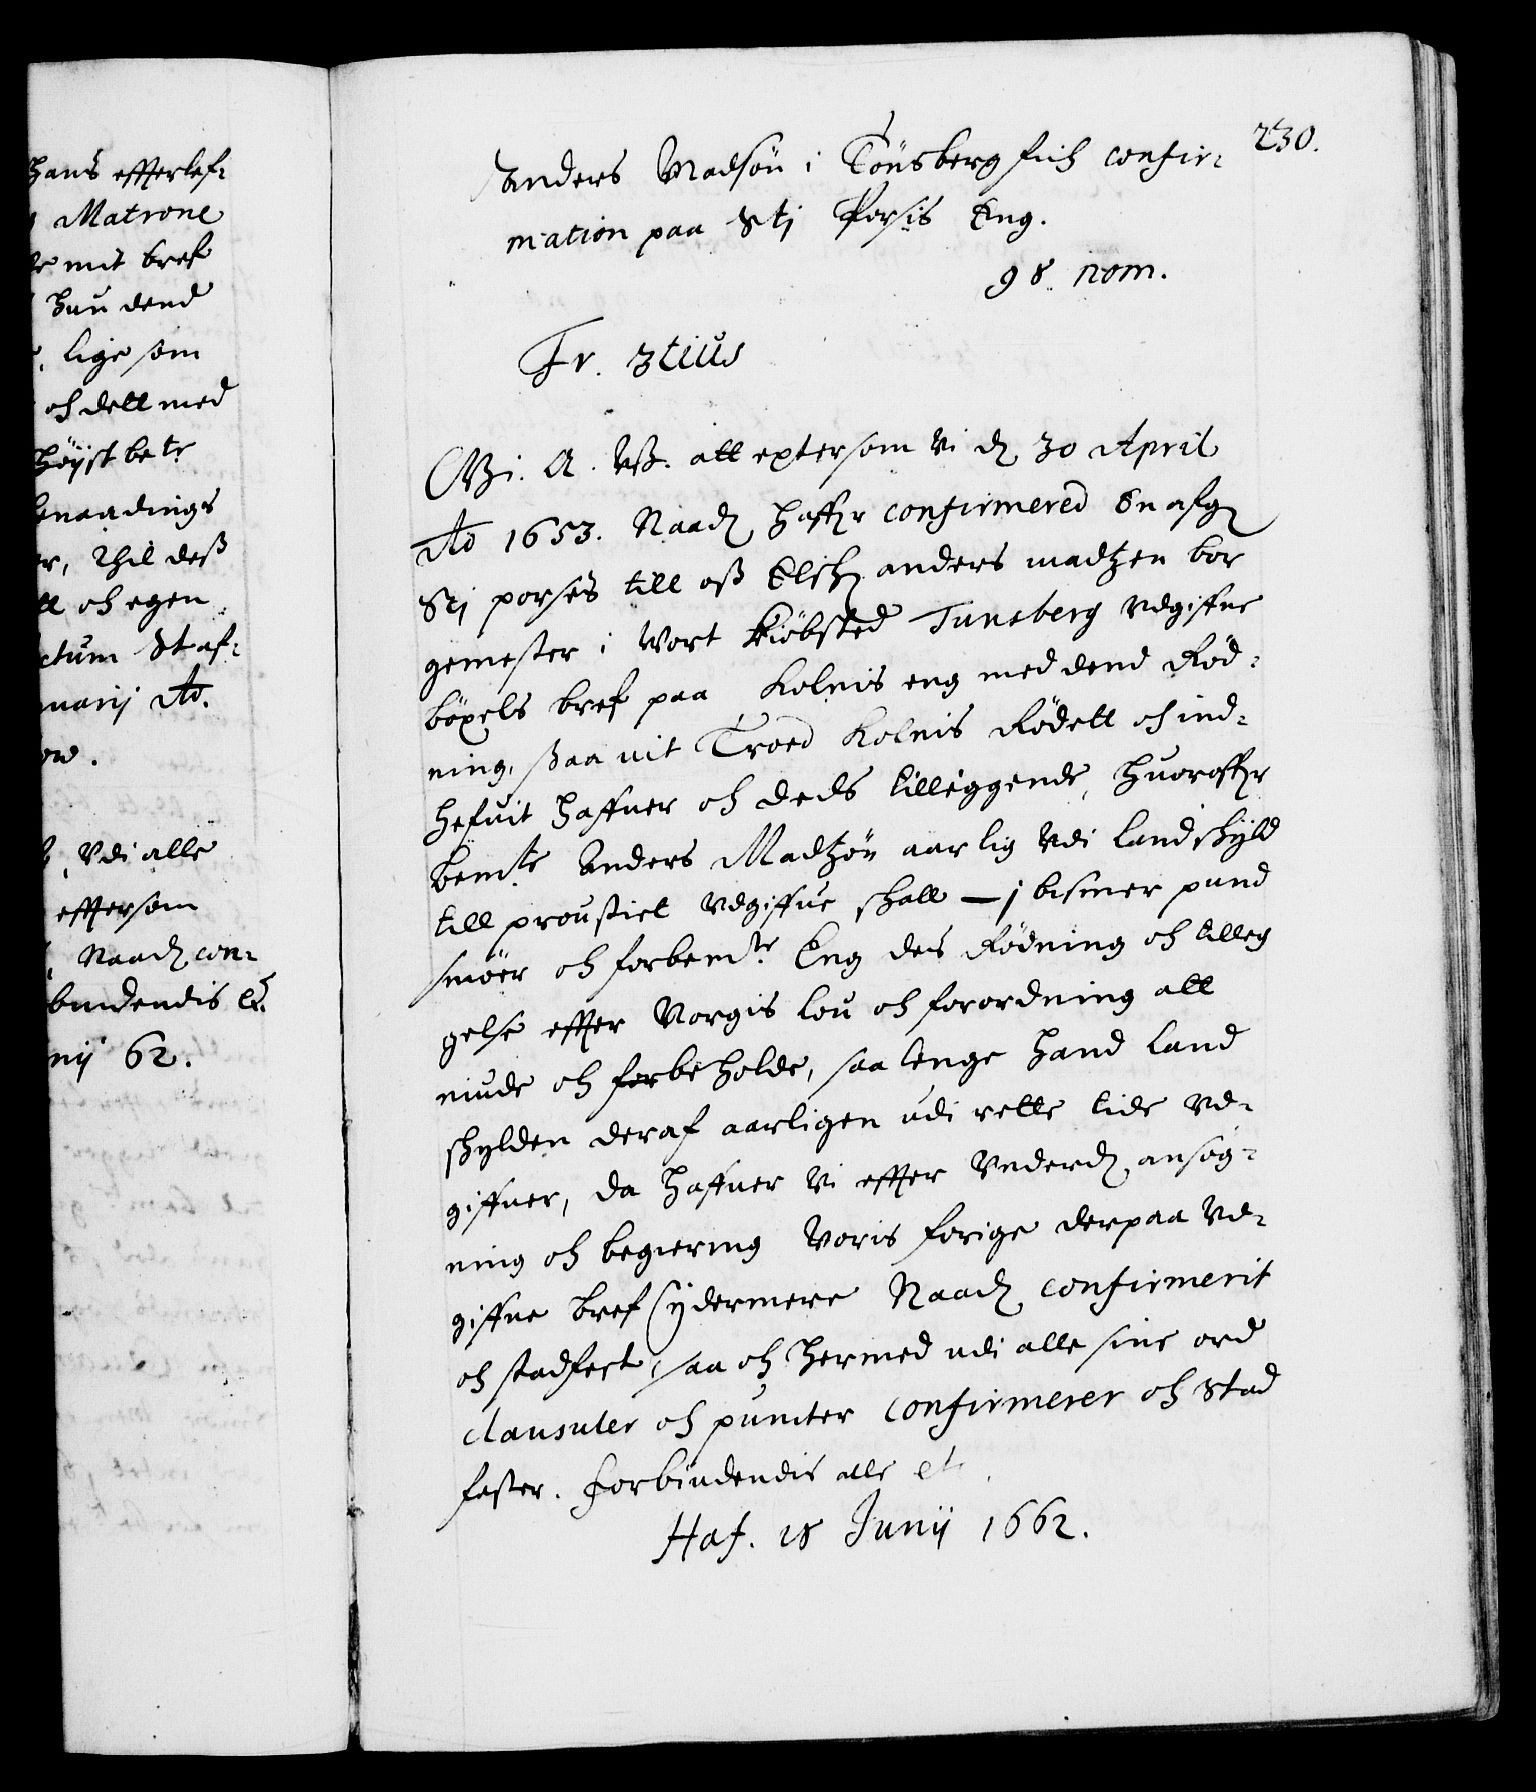 hans effterlef-
Matrone
mit bref
hun dend
lige som
och dett med
höyst bete
benaadings
er, Thil deß
tt och egen
ctum Staf-
nuarij Ao.
Vdi alle
efftersom
Naadh con-
bindendis etc.
nij 62.
230.
Anders Madsön i Tönsberg fich confir-
mation paa Sti Porsis Eng.
98 nom.
Fr. 3tius
Wi. A. Vß. att eptersom Vi dh 30 April
Ao 1653. Naadh haffr confirmered En afgh
Sti porses till oß Elschh anders madtzen bor
gemester i Vort Kiöbsted Tunsberg Vdgiffne
böxels bref paa Kolnis eng med dend Röd-
ning, saa vit Troed Kolnis Rödett och ind-
hefuit haffuer och deds tilliggende, huoraffr
bemte Anders Madtzön aarlig Vdi landskyld
till proustiet Vdgiffue skall — j bismer pund
smöer och forbemte Eng des Rödning och tilleg
gelse effter Norgis lou och forordning att
niude och forbeholde, saa lenge hand land
skylden deraf aarligen udi rette tide Vd-
giffuer, da haffuer Vi effter Vnderdh ansög-
ning och begiering Voris forige derpaa Vd-
giffne bref ydermere Naadh confirmerit
och stadfest, saa och hermed udi alle sine ord
clausuler och puncter confirmerer och stad
fester. forbindendis alle etc.
Haf. 18 Junij 1662.